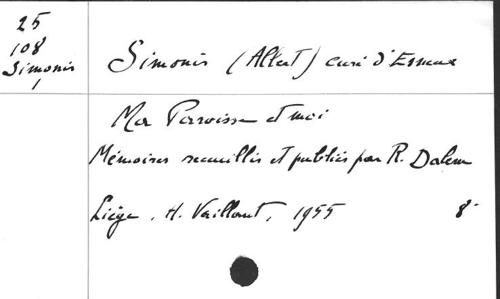 25
108
Simonis
1
Simonis (Albert) curé d'Esneux
Ma Paroisse et moi
Mémoires recueillis et publiés par R. Dalem
Liège, H. Vaillant, 1955 8°